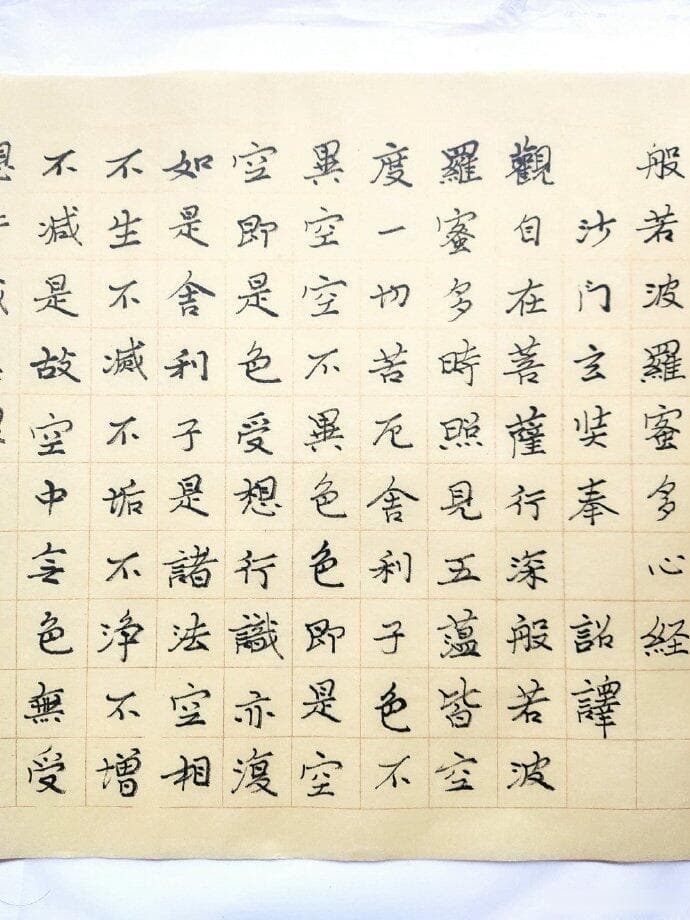 般若波羅蜜多心経
沙門玄奘奉 詔譯
觀自在菩薩行深般若波
羅蜜多時照見五蘊皆空
度一切苦厄舍利子色不
異空空不異色色即是空
空即是色受想行識亦復
如是舍利子是諸法空相
不生不滅不垢不浄不増
不減是故空中無色無受